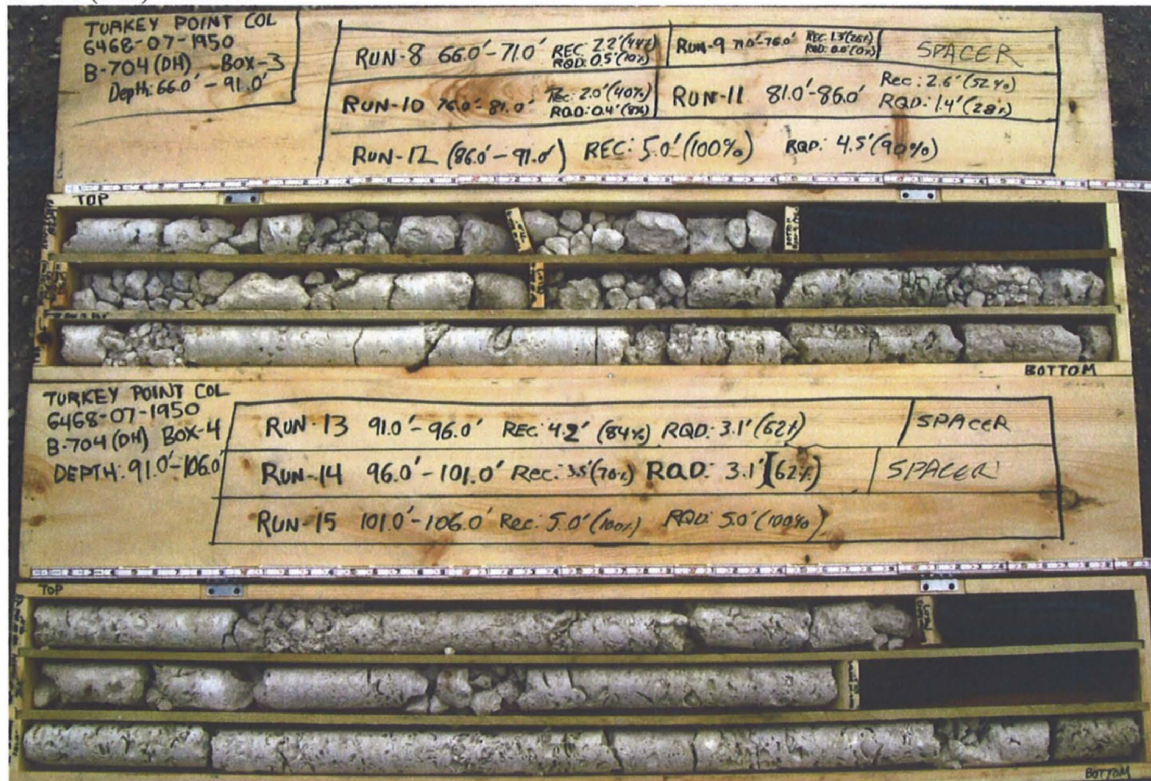 TURKEY POINT COL
6468-07-1950
B-704 (DH) BOX-3
Depth: 66.0' - 91.0'
RUN-8 66.0'-71.0' REC: 2.2' (44%)
RQD: 0.5' (10%)
RUN-9 71.0'-76.0' REC: 1.3' (26%)
RQD: 0.0' (0%)
SPACER
RUN-10 76.0'-81.0' Rec: 2.0' (40%)
RQD: 0.4' (8%)
RUN-11 81.0'-86.0' Rec: 2.6' (52%)
RQD: 1.4' (28%)
RUN-12 (86.0'-91.0') REC: 5.0' (100%) RQD: 4.5' (90%)
TOP
BOTTOM
TURKEY POINT COL
6468-07-1950
B-704 (DH) BOX-4
DEPTH: 91.0'-106.0'
RUN-13 91.0'-96.0' REC: 4.2' (84%) RQD: 3.1' (62%)
SPACER
RUN-14 96.0'-101.0' Rec: 3.5' (70%) RQD: 3.1' (62%)
SPACER
RUN-15 101.0'-106.0' Rec: 5.0' (100%) RQD: 5.0' (100%)
TOP
BOTTOM